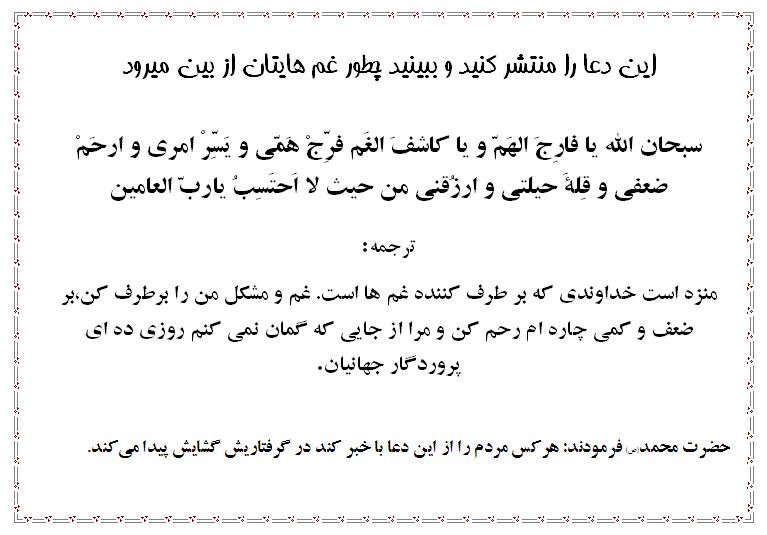 این دعا را منتشر کنید و ببینید چطور غم هایتان از بین میرود
سبحان الله یا فارِجَ الهَمّ و یا کاشفَ الغَم فرِّجْ هَمّی و یَسِّرْ امری و ارحَمْ
ضعفی و قِلةَ حیلتی و ارزُقنی من حیث لا اَحتَسِبُ یاربّ العامین
ترجمه:
منزه است خداوندی که بر طرف کننده غم ها است. غم و مشکل من را برطرف کن،بر
ضعف و کمی چاره ام رحم کن و مرا از جایی که گمان نمی کنم روزی ده ای
پروردگار جهانیان.
حضرت محمد(ص) فرمودند: هرکس مردم را از این دعا با خبر کند در گرفتاریش گشایش پیدا می‌کند.